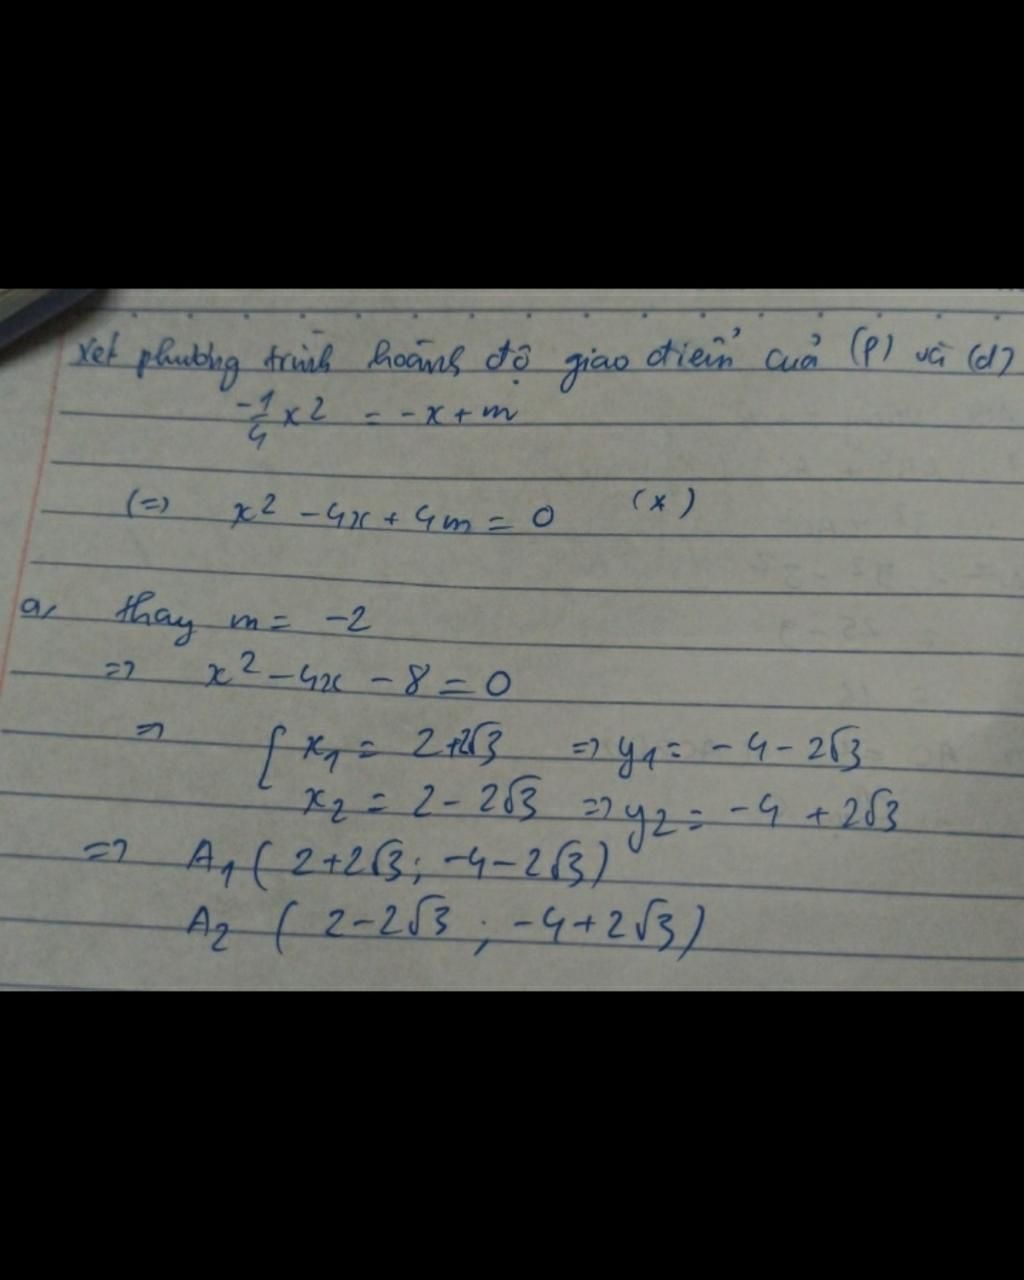 Xét phương trình hoành độ giao điểm của (P) và (d)
-1/4 x2 = -x + m
(=) x² - 4x + 4m = 0 (*)
a, thay m = -2
=> x² - 4x - 8 = 0
=> [ x₁ = 2+2√3 => y₁ = -4 - 2√3
x₂ = 2 - 2√3 => y₂ = -4 + 2√3
=> A₁ ( 2+2√3 ; -4-2√3)
A₂ ( 2-2√3 ; -4+2√3)